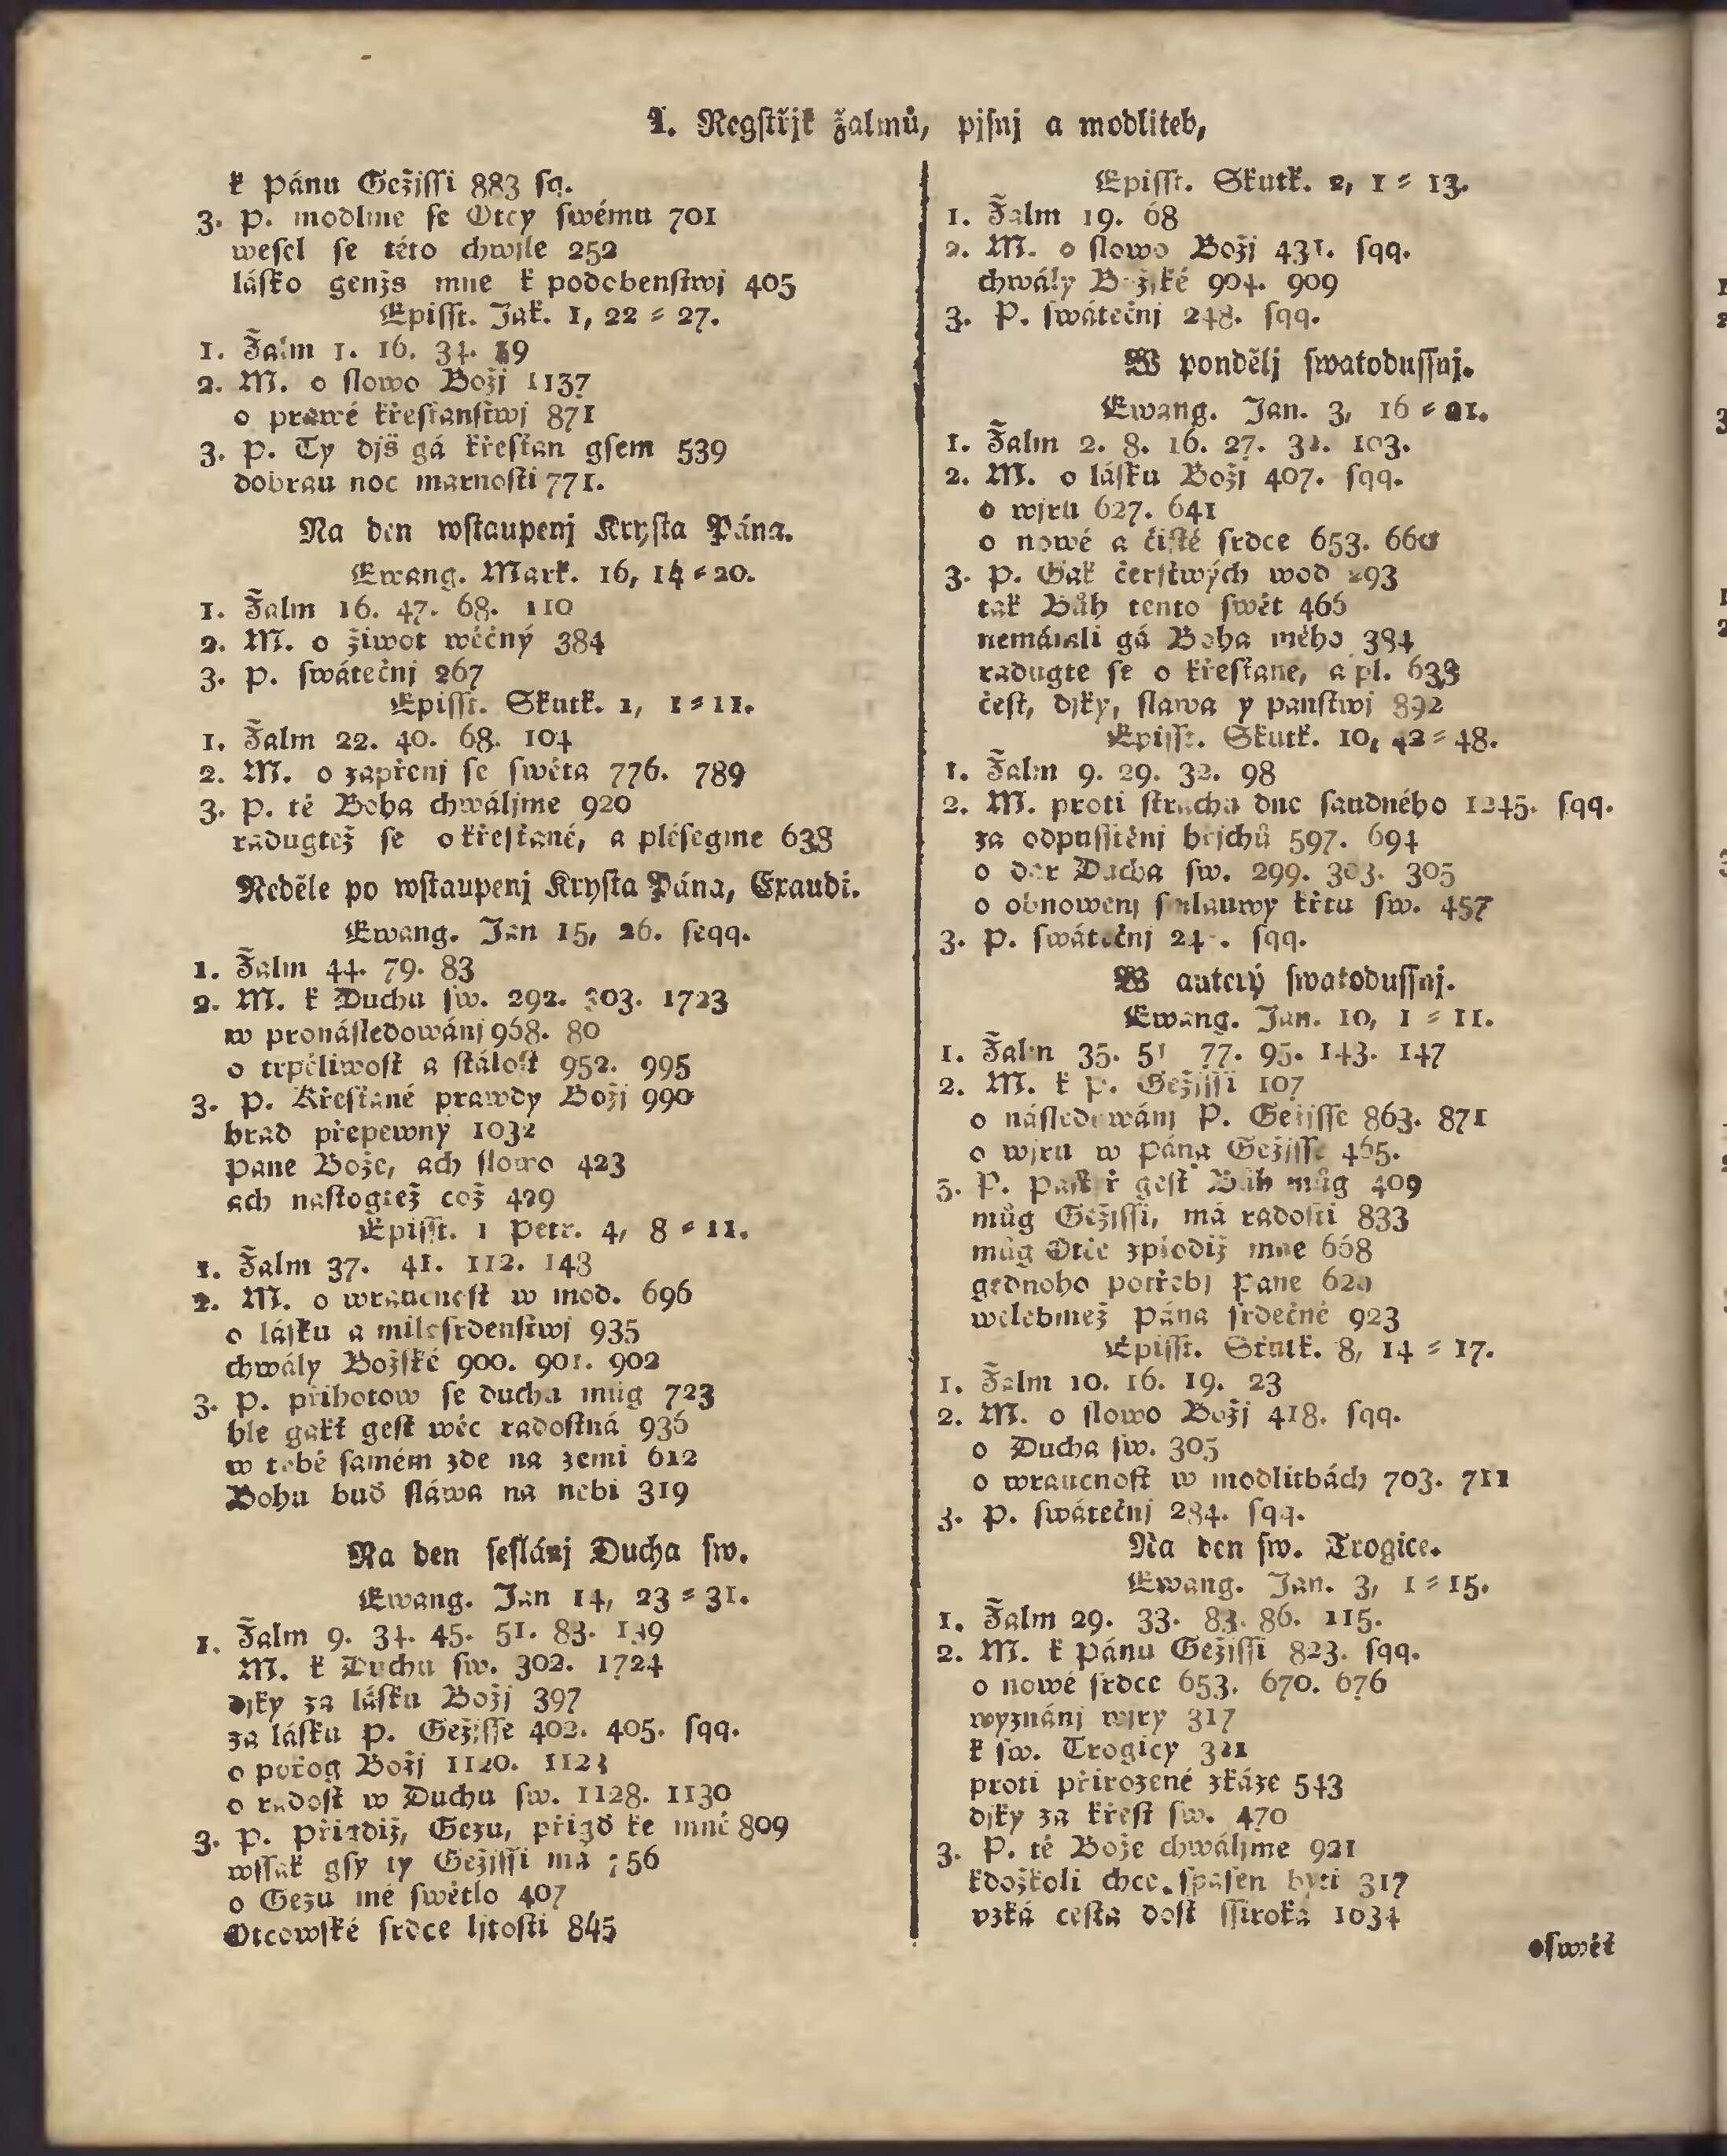 I. Regſtřjk žalmů, pjſnj a modliteb,
k Pánu Gežiſſi 883 ſq.
3. P. modlme ſe Otcy ſwému 701
weſel ſe této chwjle 252
láſko genžs mne k podobenſtwj 405
Epiſſt. Jak. 1, 22 = 27.
1. Žalm 1. 16. 34.
2. M. o ſlowo Božj 1137
o prawé křeſťanſtwj 871
3. P. Ty djš gá křeſťan gſem 539
dobrau noc marnoſti 771.
Na den wſtaupenj Kryſta Pána.
Ewang. Mark. 16, 14 = 20.
1. Žalm 16. 47. 68. 110
2. M. o žiwot wěčný 384
3. P. ſwátečnj 267
Epiſſt. Skutk. 1, 1 = 11.
1. Žalm 22. 40. 68. 104
2. M. o zapřenj ſe ſwěta 776. 789
3. P. tě Boha chwáljme 920
radugtež ſe o křeſťané, a pléſegme 638
Neděle po wſtaupenj Kryſta Pána, Exaudi.
Ewang. Jan 15, 26. ſeqq.
1. Žalm 44. 79. 83
2. M. k Duchu ſw. 292. 303. 1723
w pronáſledowánj 968. 80
o trpěliwoſt a ſtáloſt 952. 995
3. P. Křeſťané prawdy Božj 990
hrad přepewný 1032
Pane Bože, ach ſlowo 423
ach naſtogtež což 429
Epiſſt. 1 Petr. 4, 8 = 11.
1. Žalm 37. 41. 112. 143
2. M. o wraucnoſt w mod. 696
o láſku a miloſrdenſtwj 935
chwály Božſké 900. 901. 902
3. P. přihotow ſe ducha můg 723
hle gakť geſt wěc radoſtná 936
w tobě ſamém zde na zemi 612
Bohu buď ſláwa na nebi 319
Na den ſeſlánj Ducha ſw.
Ewang. Jan 14, 23 = 31.
1. Žalm 9. 34. 45. 51. 83.
M. k Duchu ſw. 302. 1724
djky za láſku Božj 397
za láſku P. Gežiſſe 402. 405. ſqq.
o pokog Božj 1120.
o radoſt w Duchu ſw. 1128. 1130
3. P. Přigdiž, Gezu, přigď ke mně 809
wſſak gſy ty Gežiſſi má
o Gezu mé ſwětlo 407
Otcowſké ſrdce ljtoſti 845
Epiſſt. Skutk. 2, 1 = 13.
1. Žalm 19. 68
2. M. o ſlowo Božj 431. ſqq.
chwály Božſké 904. 909
3. P. ſwátečnj 248. ſqq.
W pondělj ſwatoduſſnj.
Ewang. Jan. 3, 16 = 21.
1. Žalm 2. 8. 16. 27. 103.
2. M. o láſku Božj 407. ſqq.
o wjru 627. 641
o nowé a čiſté ſrdce 653.
3. P. Gak čerſtwých wod 293
tak Bůh tento ſwět 466
nemámli gá Boha mého 384
radugte ſe o křeſťané, a pl. 638
čeſt, djky, ſlawa y panſtwj 892
Epiſſt. Skutk. 10, 42 = 48.
1. Žalm 9. 29. 32. 98
2. M. proti ſtrachu dne ſaudného 1245. ſqq.
za odpuſſtěnj hřjchů 597. 694
o dar Ducha ſw. 299. 303. 305
o obnowenj ſmlauwy křtu ſw. 457
3. P. ſwátečnj ſqq.
W auterý ſwatoduſſnj.
Ewang. Jan. 10, 1 = 11.
1. Žalm 35. 51 77. 95. 143. 147
2. M. k P. Gežiſſi 107
o náſledowánj P. Gežiſſe 863. 871
o wjru w Pána Gežiſſe 465.
3. P. Paſtýř geſt Bůh můg 409
můg Gežiſſi, má radoſti 833
můg Otče zplodiž mne 668
gednoho potřebj Pane
welebmež Pána ſrdečně 923
Epiſſt. Skutk. 8, 14 = 17.
1. Žalm 10. 16. 19. 23
2. M. o ſlowo Božj 418. ſqq.
o Ducha ſw. 305
o wraucnoſt w modlitbách 703. 711
3. P. ſwátečnj 284. ſqq.
Na den ſw. Trogice.
Ewang. Jan. 3, 1 = 15.
1. Žalm 29. 33. 83. 86. 115.
2. M. k Pánu Gežiſſi 823. ſqq.
o nowé ſrdce 653. 670. 676
wyznánj wjry 317
k ſw. Trogicy 321
proti přirozené zkáze 543
djky za křeſt ſw. 470
3. P. tě Bože chwáljme 921
kdožkoli chce ſpaſen byti 317
vzká ceſta doſt ſſiroká 1034
oſwěť